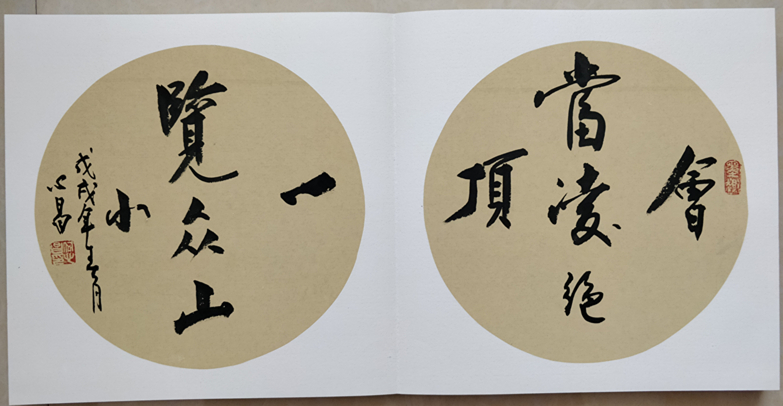 會
當凌絶
頂
一
覽众山
小
戊戌年月
昌